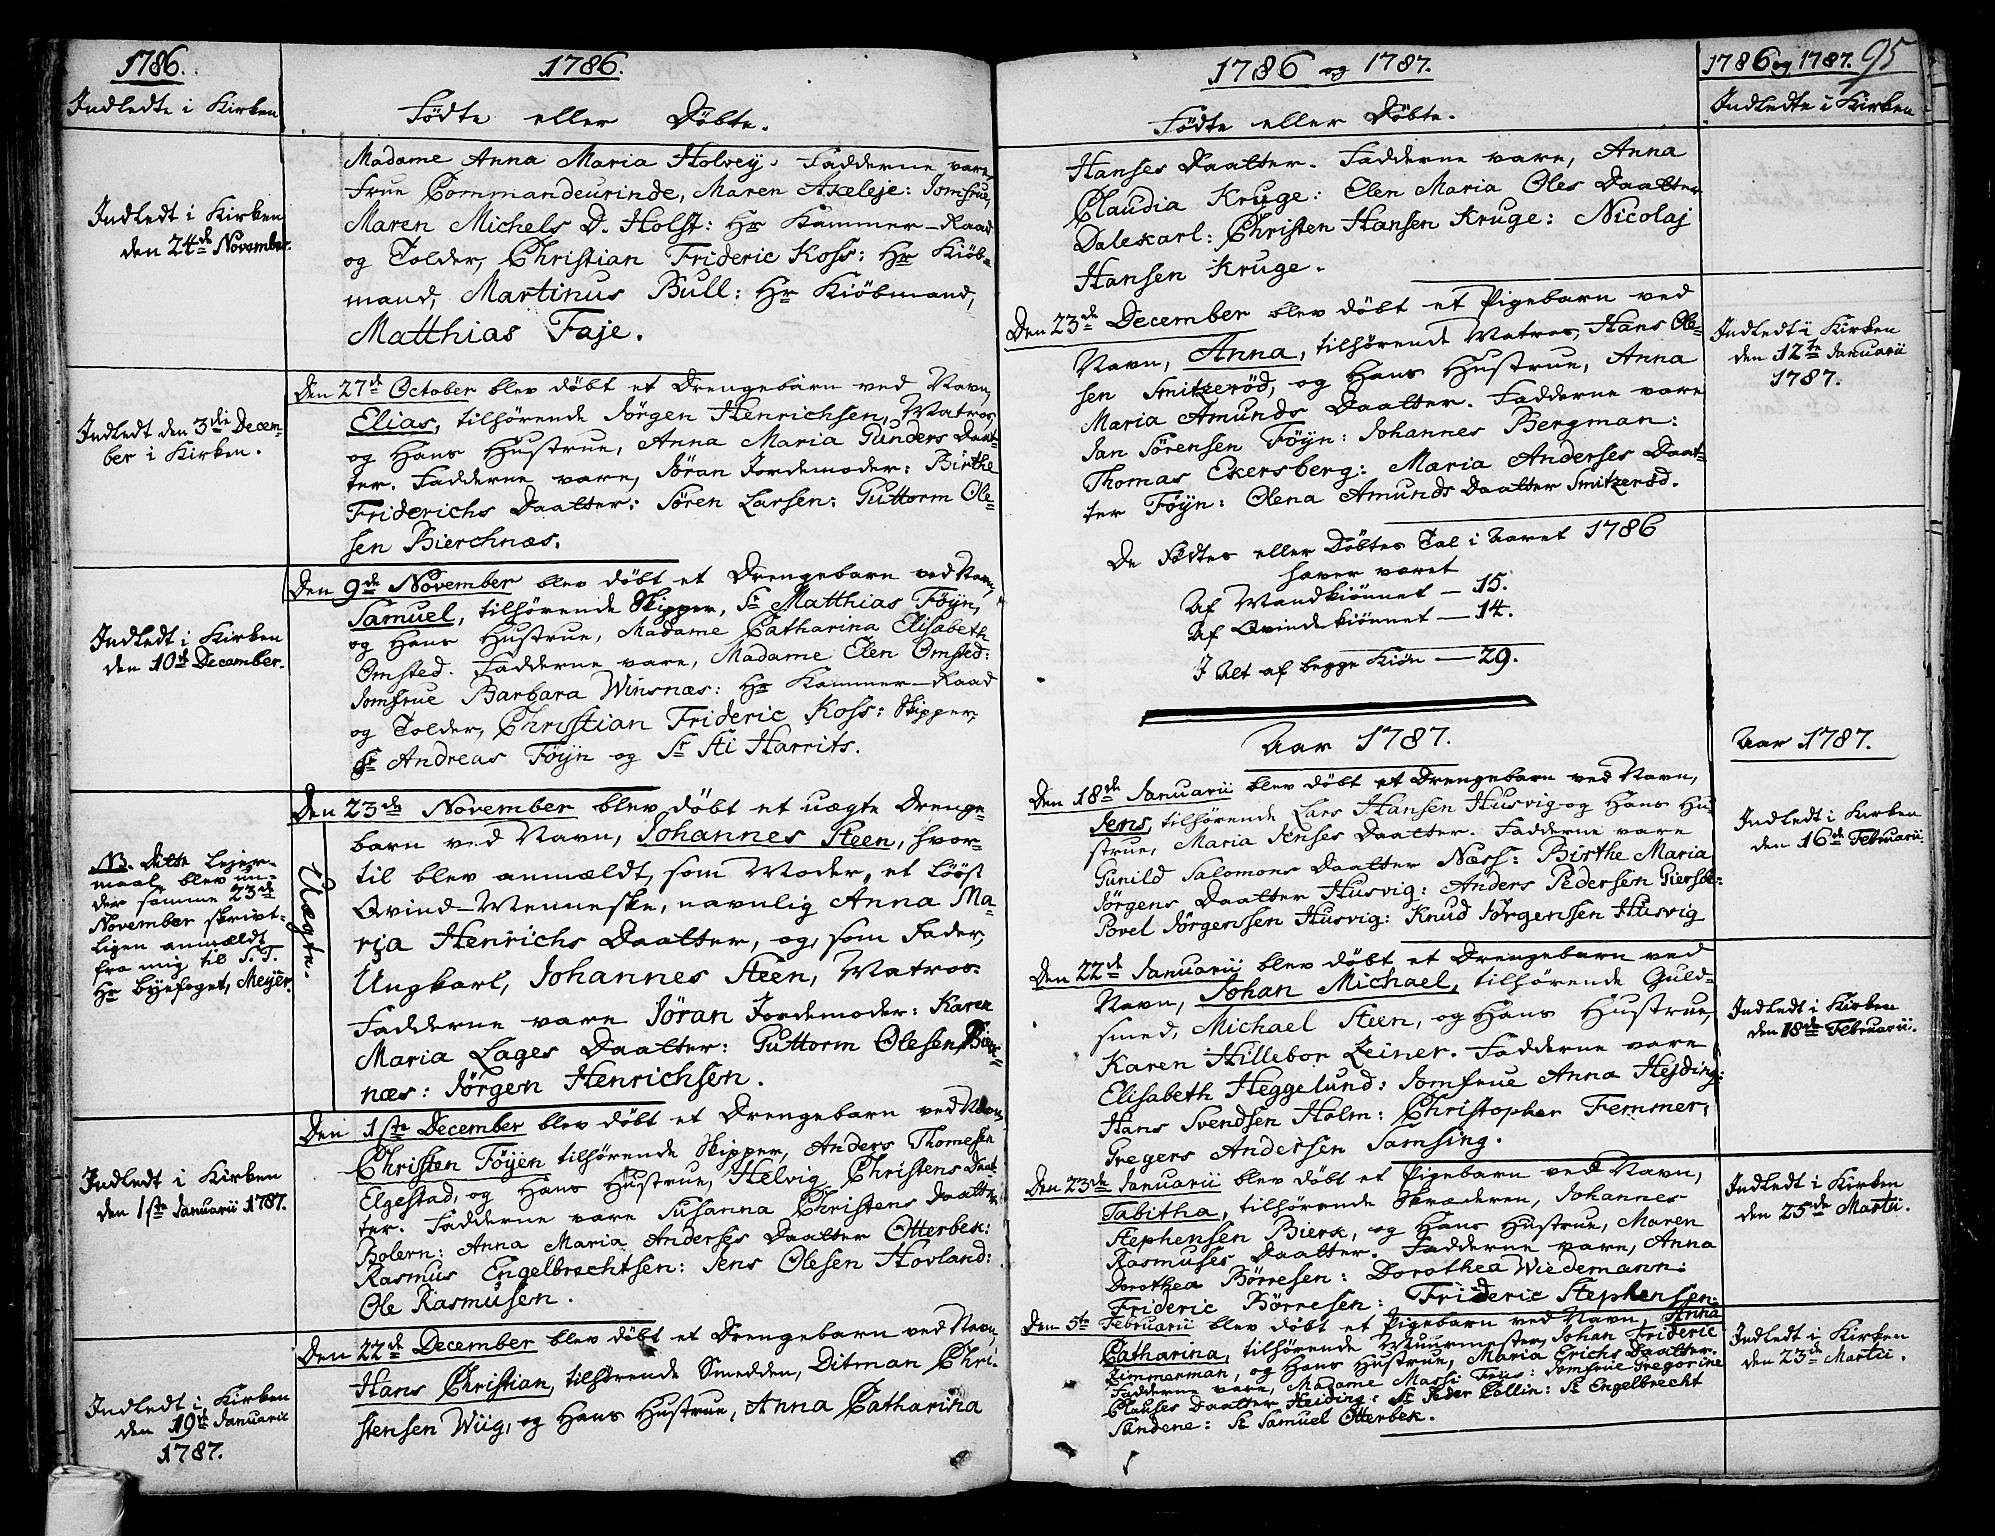 1786.
Indledte i Kirken
Indledt i Kirken
den 24de November.
Indledt den 3die Decem-
ber i Kirken.
Indledt i Kirken
den 10de December.
NB. Dette Lejer-
maal blev un-
der samme 23de
November skrivt-
ligen anmældt
fra mig til S. T.
Hr Byefoget, Mejer.
Indledt i Kirken
den 1ste Januarii 1787.
Indledt i Kirken
den 19de Januarii
1787.
1786.
Födte eller Döbte.
Madame Anna Maria Holvey. Fadderne vare,
Frue Commandeurinde, Maren Axeleje: Jomfrue,
Maren Michels D. Holst: Hr Kammer-Raad
og Tolder, Christian Frideric Koss: Hr Kiöb-
mand, Martinus Bull: Hr Kiöbmand,
Matthias Faje.
Den 27de October blev döbt et Drengebarn ved Navn,
Elias, tilhörende Jörgen Henrichsen, Matros,
og Hans Hustrue, Anna Maria Gunders Daat-
ter. Fadderne vare, Jöran Jordemoder: Birthe
Friderichs Daatter: Sören Larsen: Guttorm Ole-
sen Bierchnæs.
Den 9de November blev döbt et Drengebarn ved Navn,
Samuel, tilhörende Skipper, Sr Matthias Föyn,
og Hans Hustrue, Madame Catharina Elisabeth
Omsted. Fadderne vare, Madame Elen Omsted:
Jomfrue Barbara Winsnæs: Hr Kammer-Raad
og Tolder, Christian Frideric Koss: Skipper,
Sr Andreas Föyn og Sr Hi Harrits.
Den 23de November blev döbt et uægte Drenge-
barn ved Navn, Johannes Steen, hvor-
til blev anmældt, som Moder, et Löst
Qvind-Menneske, navnlig Anna Ma-
ria Henrichs Daatter, og, som Fader,
Ungkarl, Johannes Steen, Matros.
Fadderne vare Jöran Jordemoder: Karen
Maria Lages Daatter: Guttorm Olesen Bierk-
næs: Jörgen Henrichsen.
Uægte.
Den 1ste December blev döbt et Drengebarn ved Navn,
Christen Föyen tilhörende Skipper, Anders Thomesen
Elgestad, og Hans Hustrue, Helvig Christens Daat-
ter. Fadderne vare Susanna Christens Daatter
Bolern: Anna Maria Anderses Daatter Otterbek:
Rasmus Engelbrechtsen: Jens Olesen Hovland:
Ole Rasmusen.
Den 22de December blev döbt et Drengebarn ved Navn,
Hans Christian, tilhörende Smedden, Ditman Chri-
stensen Wiig, og Hans Hustrue, Anna Catharina
1786 og 1787.
Födte eller Döbte.
Hanses Daatter. Fadderne vare, Anna
Claudia Kruge: Elen Maria Oles Daatter
Dalekarl: Christen Hansen Kruge: Nicolaj
Hansen Kruge.
Den 23de December blev döbt et Pigebarn ved
Navn, Anna, tilhörende Matros, Hans Ole-
sen Smitzeröd, og Hans Hustrue, Anna
Maria Amunds Daatter. Fadderne vare
Jan Sörensen Föyn: Johannes Bergman:
Thomas Ekersberg: Maria Anderses Daat-
ter Föyn: Olena Amunds Daatter Smitzeröd.
De Födtes eller Döbtes Tal i Aaret 1786
haver været
Af Mandkiönnet — 15.
Af Qvindekiönnet — 14.
I Alt af begge Kiön — 29.
Aar 1787.
Den 18de Januarii blev döbt et Drengebarn ved Navn,
Jens, tilhörende Lars Hansen Husvig og Hans Hu-
strue, Maria Jenses Daatter. Fadderne vare
Gunild Salomons Daatter Næss: Birthe Maria
Jörgens Daatter Husvig: Anders Pedersen Giersöe:
Povel Jörgensen Husvig: Knud Jörgensen Husvig
Den 22de Januarii blev döbt et Drengebarn ved
Navn, Johan Michael, tilhörende Guld-
smed, Michael Steen, og Hans Hustrue,
Karen Hillebor Zeiner. Fadderne vare
Elisabeth Heggelund: Jomfrue Anna Hejding:
Hans Svendsen Holm: Christopher Femmer:
Gregers Andersen Samsing.
Den 23de Januarii blev döbt et Pigebarn ved Navn,
Tabitha, tilhörende Skræderen, Johannes
Stephensen Bierk, og Hans Hustrue, Maren
Rasmuses Daatter. Fadderne vare, Anna
Dorothea Börresen: Dorothea Wiedemann:
Frideric Börresen: Frideric Stephensen.
Den 5te Februarii blev döbt et Pigebarn ved Navn, Anna
Catharina, tilhörende Muurmester, Johan Frideric
Zimmerman, og Hans Hustrue, Maria Erichs Daatter.
Fadderne vare, Madame Massi Friis: Jomfrue Gregorine
Clauses Daatter Heiding: Sr Peder Collin: Sr Engelbrecht
Sandene: Sr Samuel Otterbek.
1786 og 1787.
95
Indledte i Kirken
Indledt i Kirken
den 12te Januarii
1787.
Aar 1787.
Indledt i Kirken
den 16de Februarii.
Indledt i Kirken
den 18de Februarii.
Indledt i Kirken
den 25de Martii.
Indledt i Kirken
den 23de Martii.